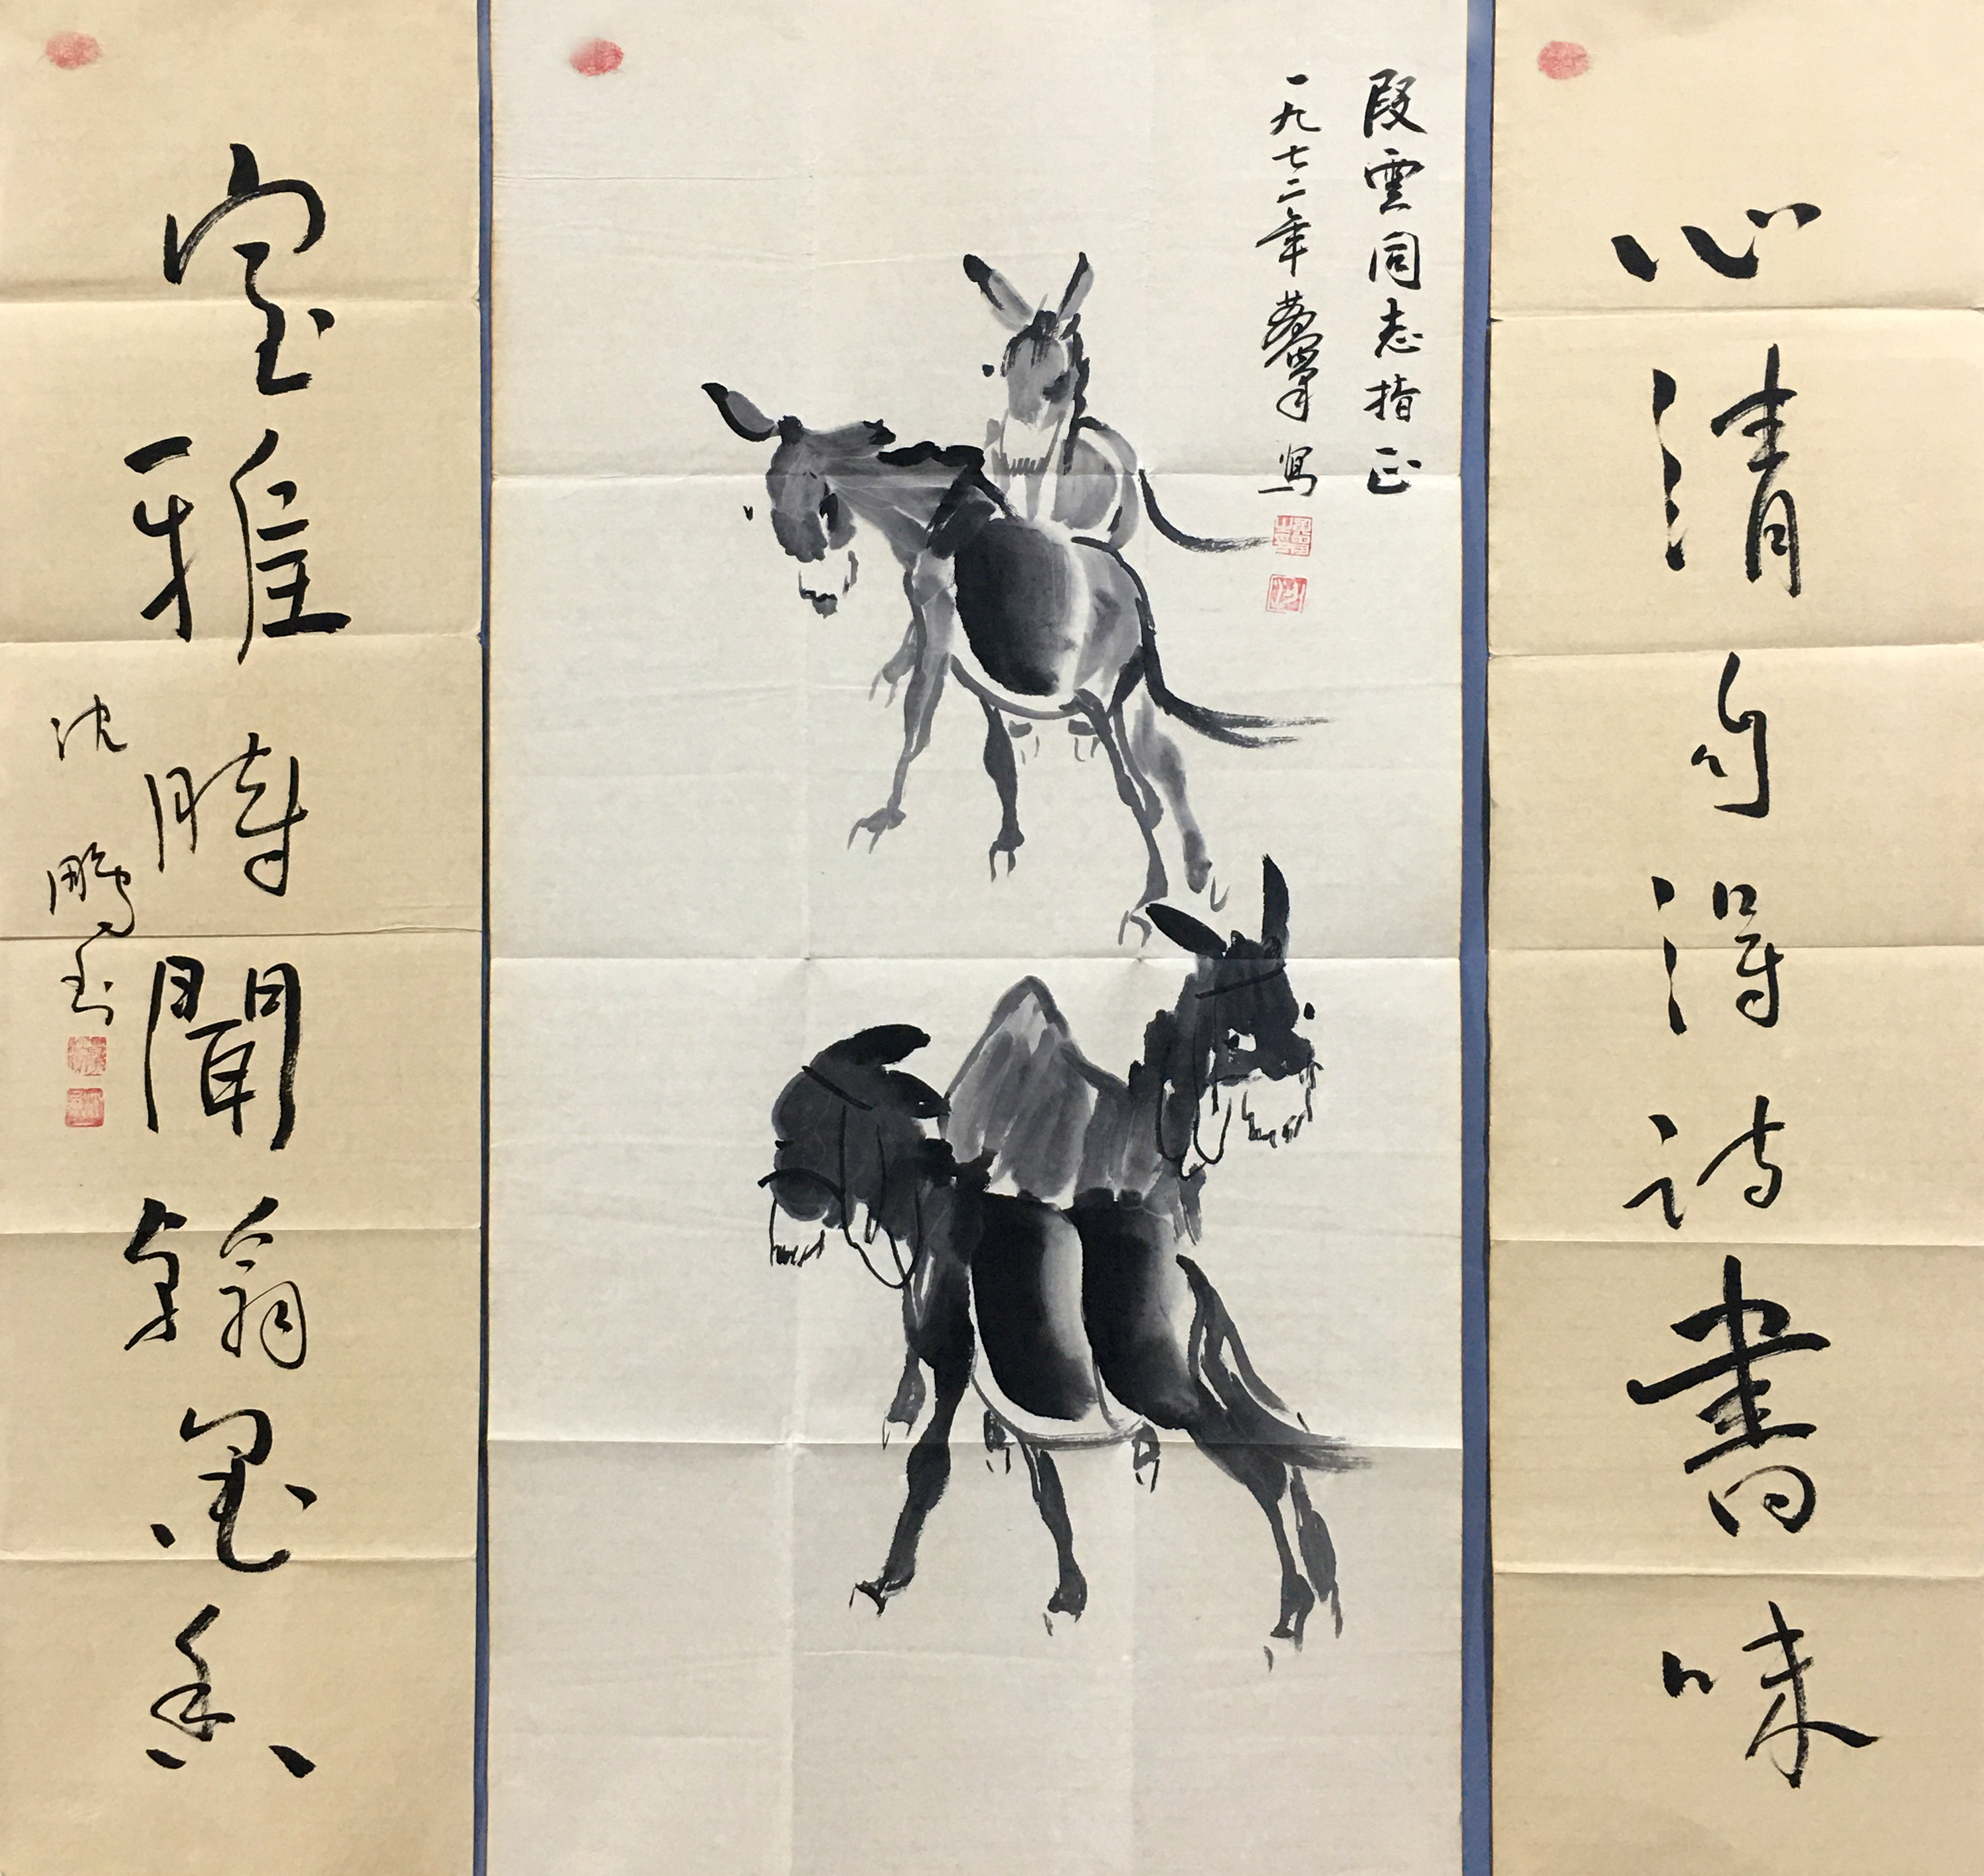 心清自得诗書味
段雲同志指正
一九七二年黄胄写
室雅時聞翰墨香
沈鹏书